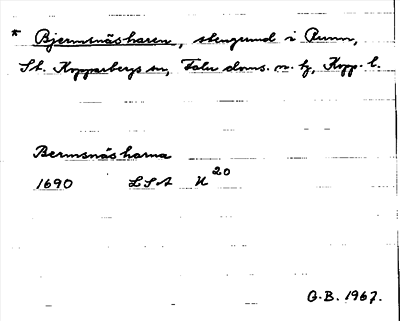 * Bjermsnäsharen, stengrund i Runn,
St. Kopparbergs sn, Falu doms. n. tg, Kopp. l.
Bermsnäs harna
1690 LSA U 20
G.B. 1967.